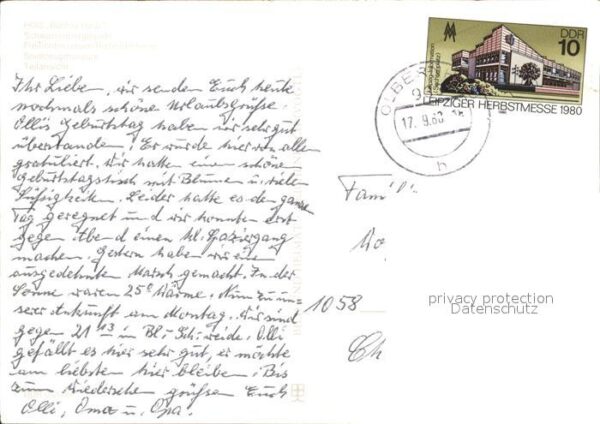 Ihr Lieben, wir senden Euch heute
nochmals schöne Urlaubsgrüße.
Olli's Geburtstag haben wir sehr gut
überstanden. Er wurde hier von allen
gratuliert. Wir hatten einen schönen
Geburtstagstisch mit Blumen u. viele
Süßigkeiten. Leider hatte es den ganzen
Tag geregnet und wir konnten erst
gegen Abend einen kl. Spaziergang
machen. Gestern haben wir eine
ausgedehnten Marsch gemacht. In der
Sonne waren 25° Wärme. Nun zu un-
serer Ankunft am Montag. Wir sind
gegen 21 13 in Bln. Schöneweide. Olli
gefällt es hier sehr gut, er möchte
am liebsten hier bleiben. Bis
zum Wiedersehen grüßen Euch
Olli, Oma u. Opa.
DDR
10
LEIPZIGER HERBSTMESSE 1980
OLBE
17.9.80
h
Famili
1058
Ch
privacy protection
Datenschutz